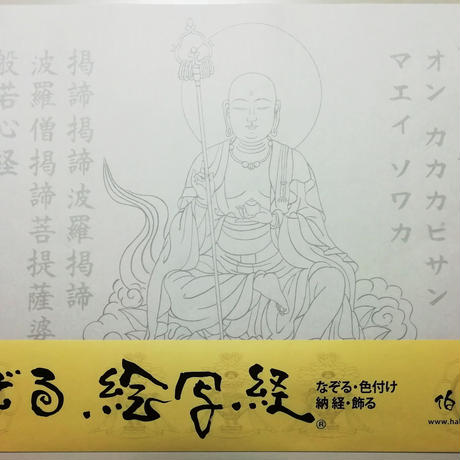 オン カカカビサン
マエイ ソワカ
掲諦掲諦波羅掲諦
波羅僧掲諦菩提薩婆
般若心経
ぞる 絵写経®
なぞる・色付け
納経・飾る
伯
www.hal